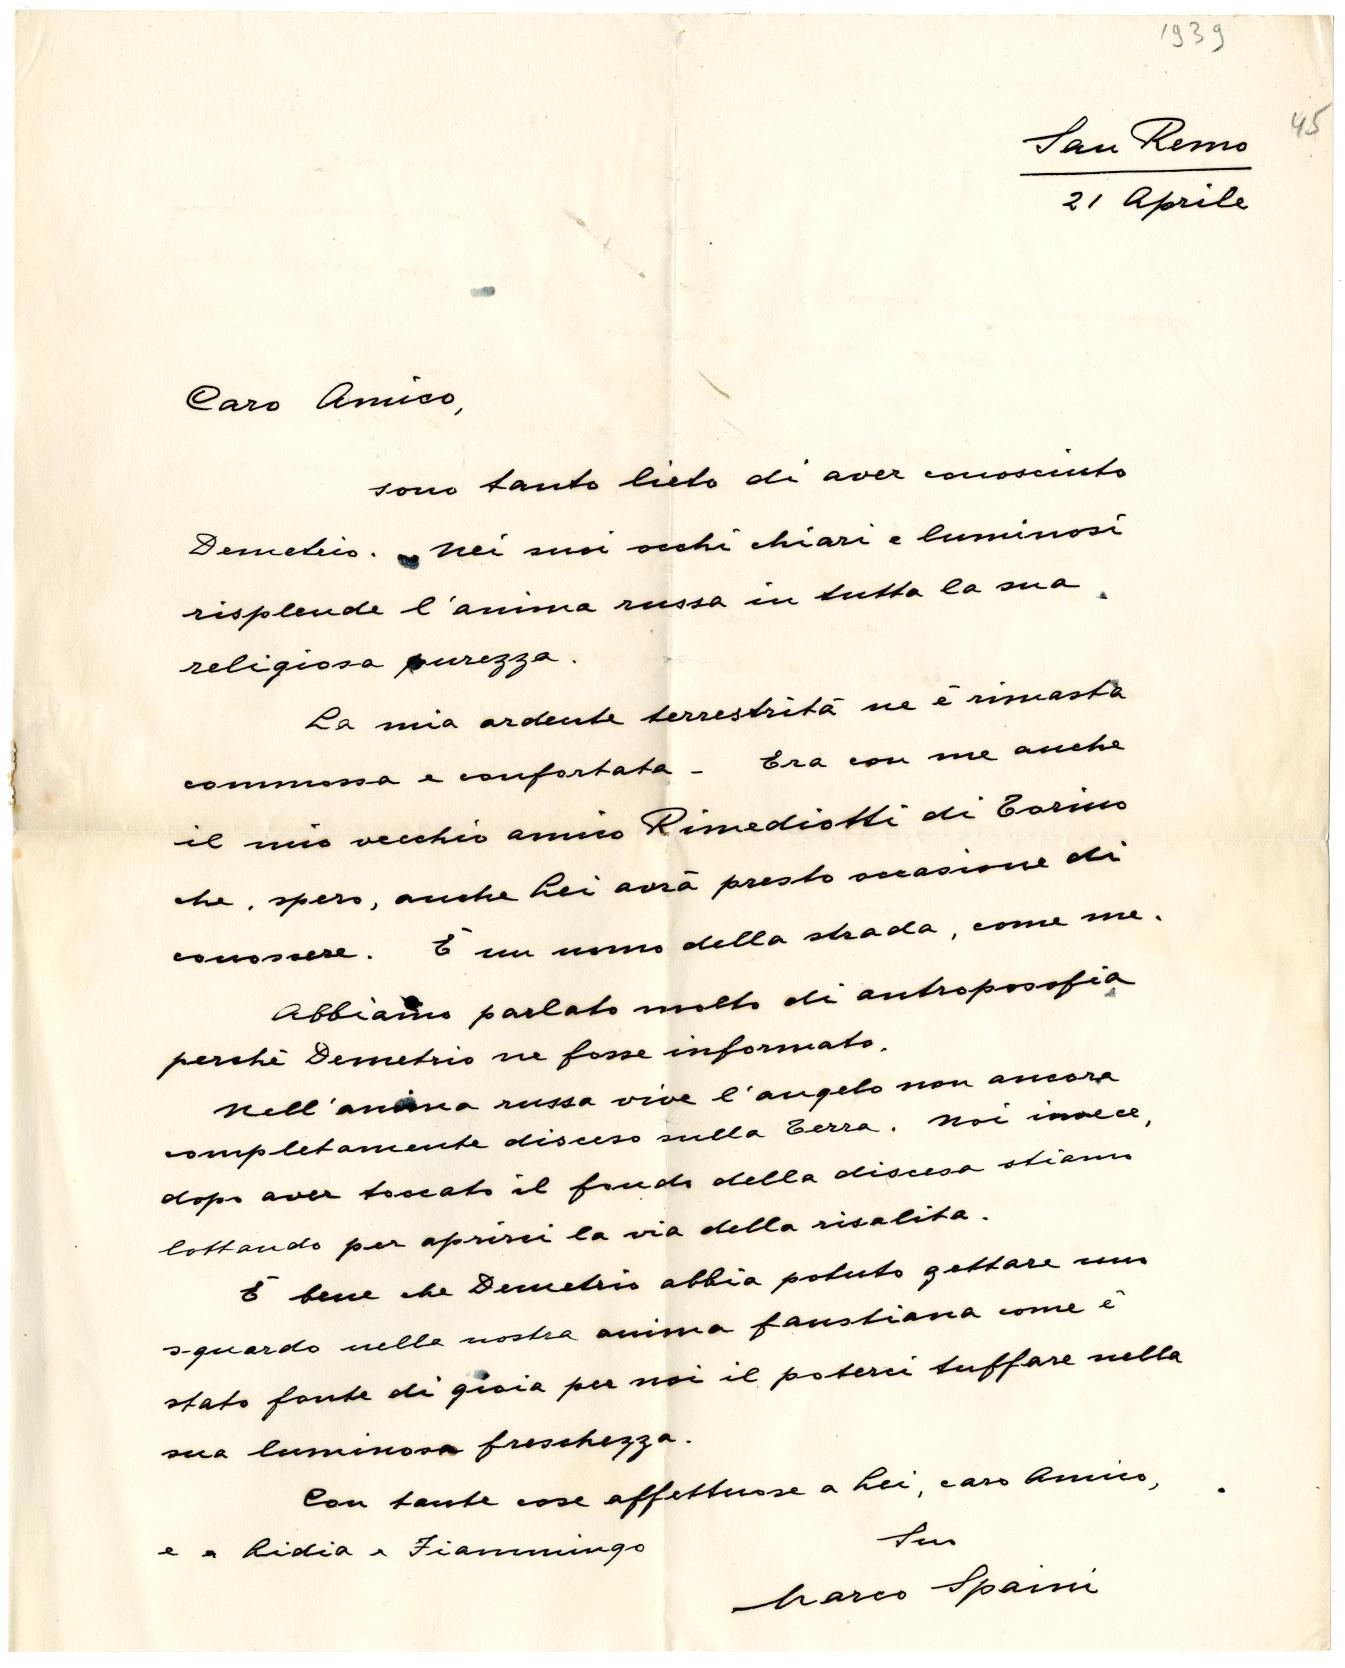 1939
45
San Remo
21 Aprile
Caro Amico,
sono tanto lieto di aver conosciuto
Demetrio. Nei suoi occhi chiari e luminosi
risplende l'anima russa in tutta la sua
religiosa purezza.
La mia ardente terrestrità ne è rimasta
commossa e confortata - Era con me anche
il mio vecchio amico Rimediotti di Torino
che, spero, anche Lei avrà presto occasione di
conoscere. È un uomo della strada, come me.
Abbiamo parlato molto di antroposofia
perchè Demetrio ne fosse informato.
Nell'anima russa vive l'angelo non ancora
completamente disceso sulla Terra. Noi invece,
dopo aver toccato il fondo della discesa stiamo
lottando per aprirci la via della risalita.
È bene che Demetrio abbia potuto gettare uno
sguardo nella nostra anima faustiana come è
stato fonte di gioia per noi il poterci tuffare nella
sua luminosa freschezza.
Con tante cose affettuose a Lei, caro Amico,
e a Lidia e Fiammingo
Suo
Marco Spaini